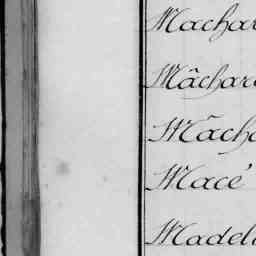 Machar
Mâchar
Mâcho
Macé
Madel